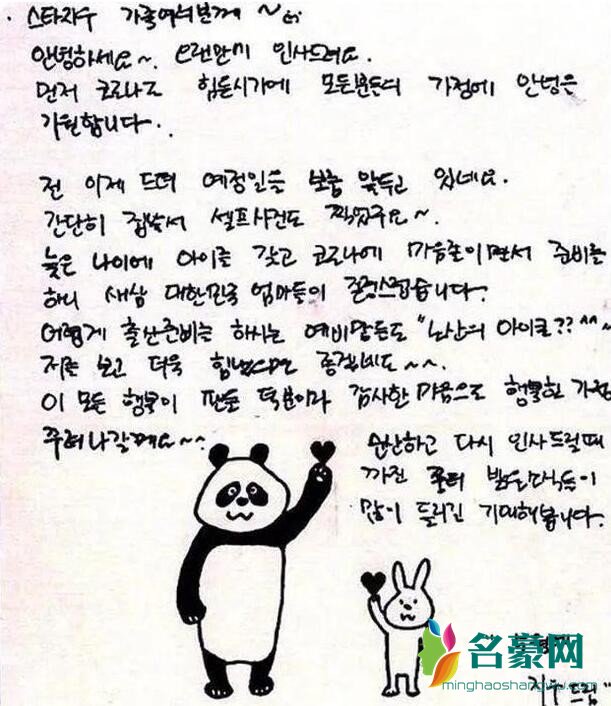 · 스타지우 가족여러분께 ~
안녕하세요~. 오랜만에 인사드려요.
먼저 코로나로 힘든시기에 모든분들의 가정에 안녕을
기원합니다..
전 이제 드뎌 예정일을 보름 앞두고 있네요.
간단히 집에서 셀프사진도 찍었구요~.
늦은 나이에 아이를 갖고 코로나에 마음졸이면서 준비를
하니 새삼 대한민국 엄마들이 존경스럽습니다.
어렵게 출산준비를 하시는 예비맘들도 "노산의 아이콘?? ^^~
저를 보고 더욱 힘냈으면 좋겠네요~~.
이 모든 행복이 팬들 덕분이라 감사한 마음으로 행복한 가정
꾸려나갈께요~~
순산하고 다시 인사드릴때
까진 밝은소식들이
많이 들리길 기대해봅니다.
지우 드림"
名豪网
minghaoshangwu.com